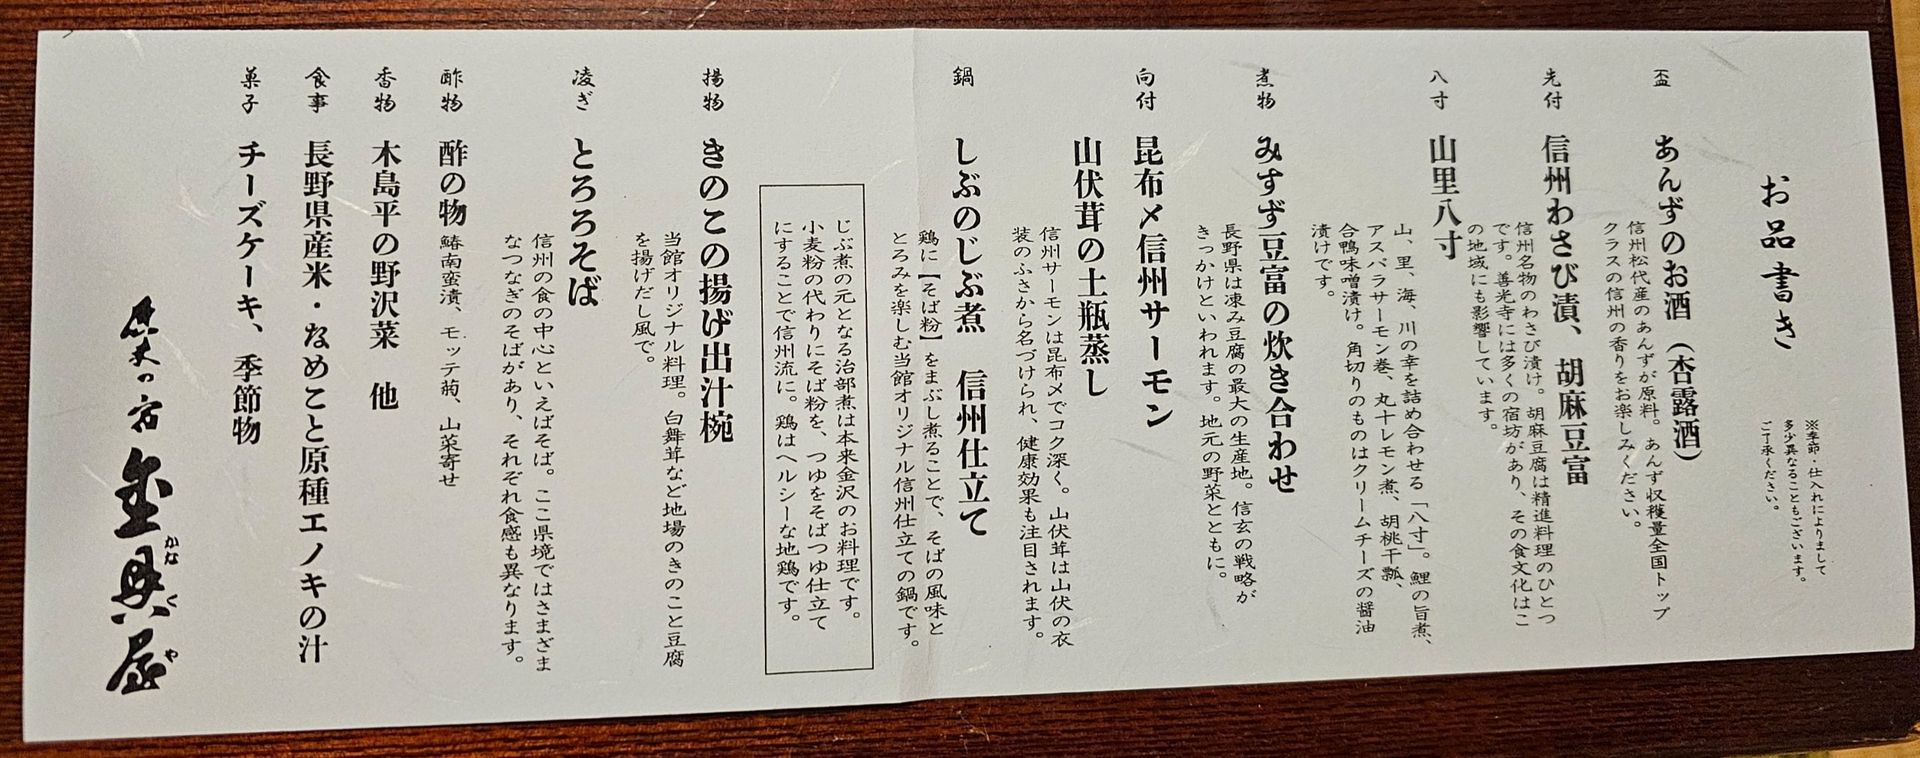 お品書き
※季節・仕入れによりまして
多少異なることもございます。
ご了承ください。
盃 あんずのお酒（杏露酒）
信州松代産のあんずが原料。あんず収穫量全国トップ
クラスの信州の香りをお楽しみください。
先付 信州わさび漬、胡麻豆富
信州名物のわさび漬け。胡麻豆腐は精進料理のひとつ
です。善光寺には多くの宿坊があり、その食文化はこ
の地域にも影響しています。
八寸 山里八寸
山、里、海、川の幸を詰め合わせる「八寸」。鯉の旨煮、
アスパラサーモン巻、丸十レモン煮、胡桃干瓢、
合鴨味噌漬け。角切りのものはクリームチーズの醤油
漬けです。
煮物 みすず豆富の炊き合わせ
長野県は凍み豆腐の最大の生産地。信玄の戦略が
きっかけといわれます。地元の野菜とともに。
向付 昆布〆信州サーモン
山伏茸の土瓶蒸し
信州サーモンは昆布〆でコク深く。山伏茸は山伏の衣
装のふさから名づけられ、健康効果も注目されます。
鍋 しぶのじぶ煮 信州仕立て
鶏に【そば粉】をまぶし煮ることで、そばの風味と
とろみを楽しむ当館オリジナル信州仕立ての鍋です。
じぶ煮の元となる治部煮は本来金沢のお料理です。
小麦粉の代わりにそば粉を、つゆをそばつゆ仕立て
にすることで信州流に。鶏はヘルシーな地鶏です。
揚物 きのこの揚げ出汁椀
当館オリジナル料理。白舞茸など地場のきのこと豆腐
を揚げだし風で。
凌ぎ とろろそば
信州の食の中心といえばそば。ここ県境ではさまざま
なつなぎのそばがあり、それぞれ食感も異なります。
酢物 酢の物 鰆南蛮漬、モッテ菊、山菜寄せ
香物 木島平の野沢菜 他
食事 長野県産米・なめこと原種エノキの汁
菓子 チーズケーキ、季節物
歴史の宿 金具屋
かなぐや